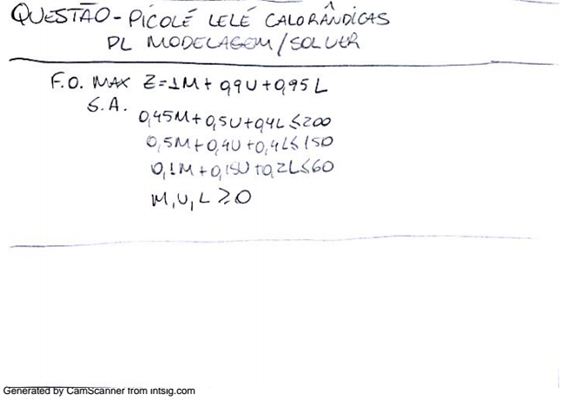 QUESTÃO - PICOLÉ LELÉ CALORÂNDICAS
PL MODELAGEM / SOLVER
F.O. MAX Z = 1M + 0,9U + 0,95L
S.A.
0,45M + 0,5U + 0,4L ≤ 200
0,5M + 0,4U + 0,4L ≤ 150
0,1M + 0,15U + 0,2L ≤ 60
M, U, L ≥ 0
Generated by CamScanner from intsig.com